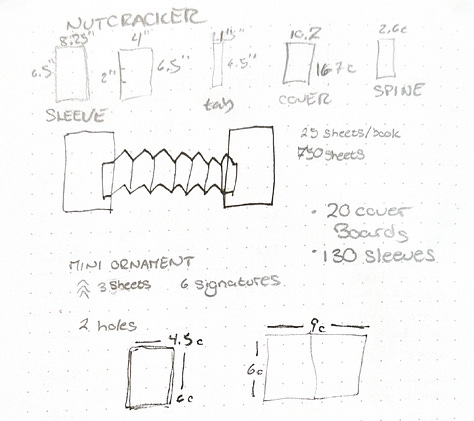 NUTCRACKER
8.25" 4" 1.5" 10.2 2.6c
6.5" 2" 6.5" 4.5" 16.7c
SLEEVE tab COVER SPINE
25 sheets/book
750 sheets
• 20 cover
Boards
• 130 sleeves
MINI ORNAMENT
3 sheets 6 signatures
2 holes
4.5c 9c
6c 6c